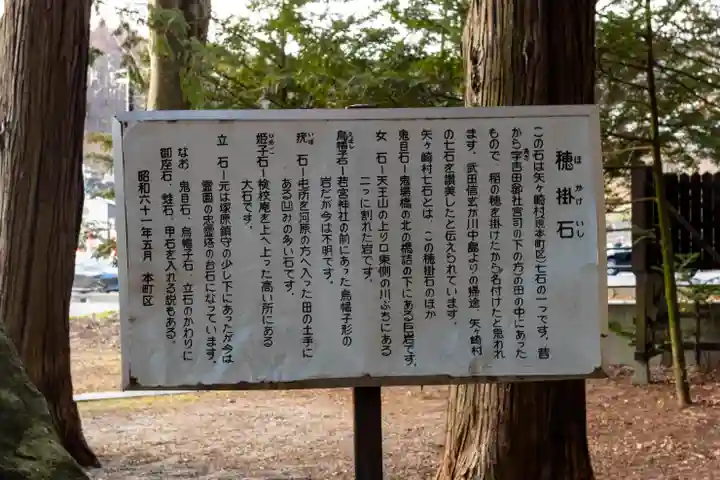 穂掛石
ほかけいし
この石は矢ヶ崎村(現本町区)七石の一つです。昔
から字吉田翁社宮司の下の方の田の中にあった
もので、稲の穂を掛けたから名付けたと思われ
ます。武田信玄が川中島よりの帰途、矢ヶ崎村
の七石を讃美したと伝えられています。
矢ヶ崎村七石とは、この穂掛石のほか
鬼目石―鬼場橋の北の橋詰の下にある巨岩です。
女 石―天王山の上り口東側の川ぶちにある
二つに割れた岩です。
烏帽子石―若宮神社の前にあった烏帽子形の
岩だが今は不明です。
疣 石―屯所を河原の方へ入った田の土手に
ある凹みの多い石です。
姫子石―検校庵を上へ上った高い所にある
大石です。
立 石―元は塚原鎮守の少し下にあったが今は
霊園の忠霊塔の台石になっています。
なお 鬼目石、烏帽子石、立石のかわりに
御座石、蛙石、甲石を入れる説もある。
昭和六十一年五月 本町区